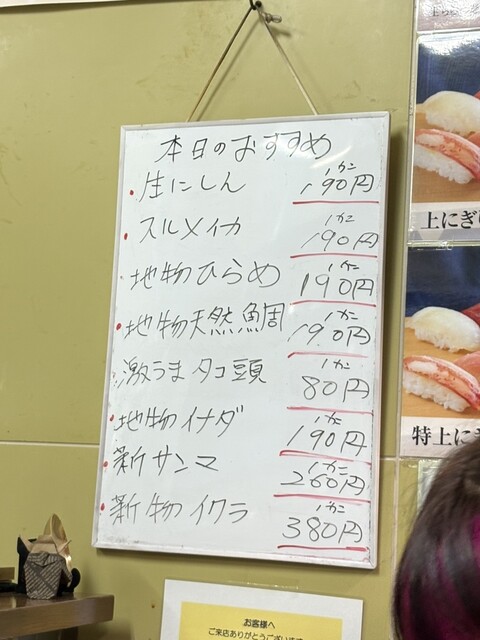 本日のおすすめ
・生にしん 1カン 190円
・スルメイカ 1カン 190円
・地物ひらめ 1カン 190円
・地物天然鯛 1カン 190円
・激うまタコ頭 1カン 80円
・地物イナダ 1カン 190円
・新サンマ 1カン 260円
・新物イクラ 1カン 380円
上にぎ
特上にぎ
お客様へ
ご来店ありがとうございます